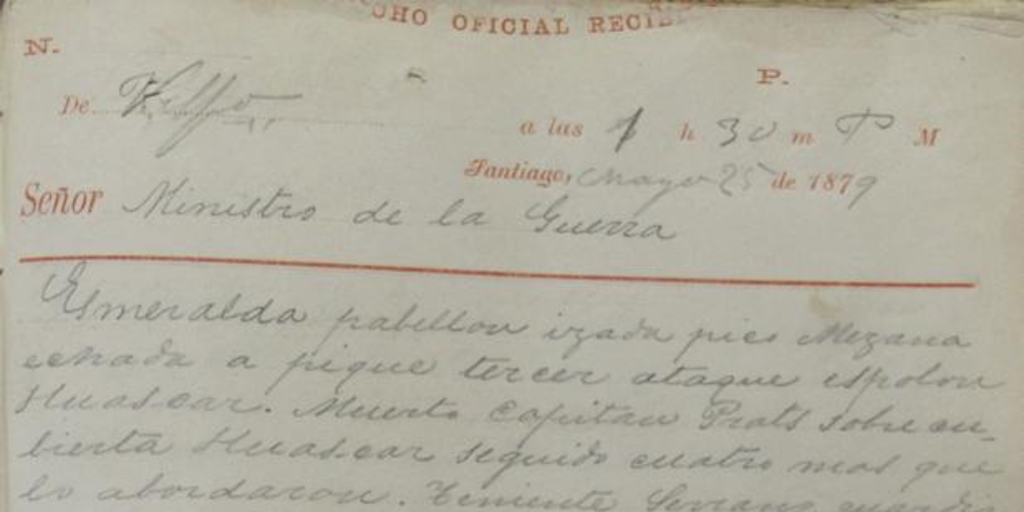 OFICIAL
N.
P.
De Valpo
a las 1 h 30 m P M
Santiago, Mayo 25 de 1879
Señor Ministro de la Guerra
Esmeralda pabellon izado pico Mezana
echada a pique tercer ataque espolon
Huascar. Muerto Capitan Prats sobre cu-
bierta Huascar seguido cuatro mas que
lo abordaron. Teniente Serrano